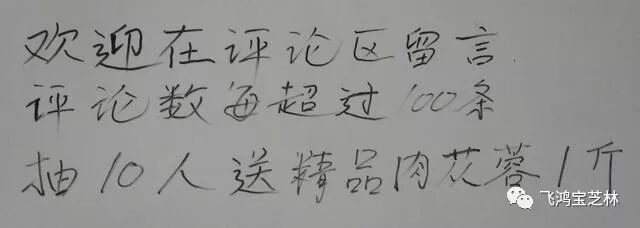 欢迎在评论区留言
评论数每超过100条
抽10人送精品肉苁蓉1斤
飞鸿宝芝林